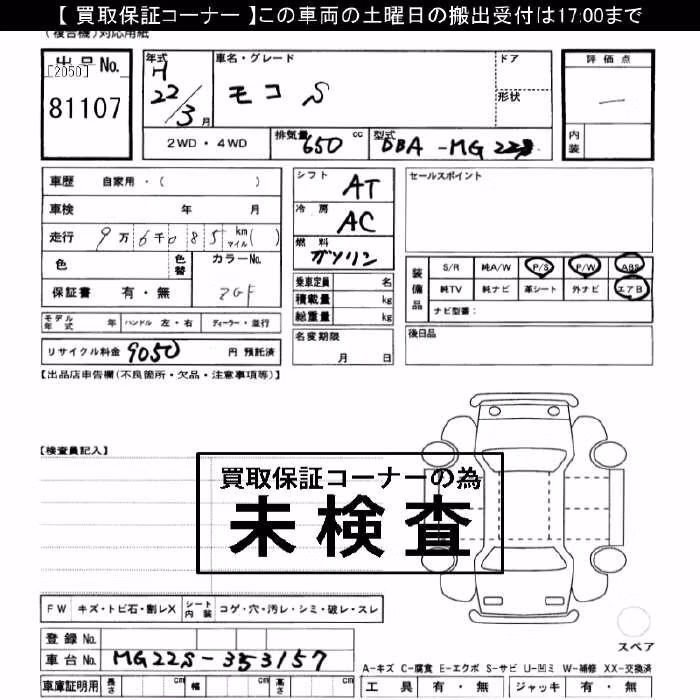 【 買取保証コーナー 】この車両の土曜日の搬出受付は17:00まで
(複合機)対応用紙
出品No.
[2050]
81107
年式
H
22/3月
車名・グレード
モコ S
ドア
形状
2WD・4WD
排気量 650 cc
型式 DBA-MG22S
評価点
―
内装
車歴 自家用・( )
車検 年 月
走行 9万6千085 km マイル( )
色 色替 カラーNo.
保証書 有・無 ZGF
モデル年式 年 ハンドル 左・右 ディーラー・並行
リサイクル料金 9050 円 預託済
シフト AT
冷房 AC
燃料 ガソリン
乗車定員 名
積載量 kg
総重量 kg
名変期限
月 日
セールスポイント
装備品
S/R 純A/W P/S P/W ABS
純TV 純ナビ 革シート 外ナビ エアB
ナビ型番:
後日品
【出品店申告欄(不良箇所・欠品・注意事項等)】
【検査員記入】
買取保証コーナーの為
未検査
FW キズ・トビ石・割レX シート内装 コゲ・穴・汚レ・シミ・破レ・スレ
登録No.
車台No. MG22S-353157
車庫証明用 長さ cm 幅 cm 高さ cm
スペア
A-キズ C-腐食 E-エクボ S-サビ U-凹ミ W-補修 XX-交換済
工具 有・無 ジャッキ 有・無